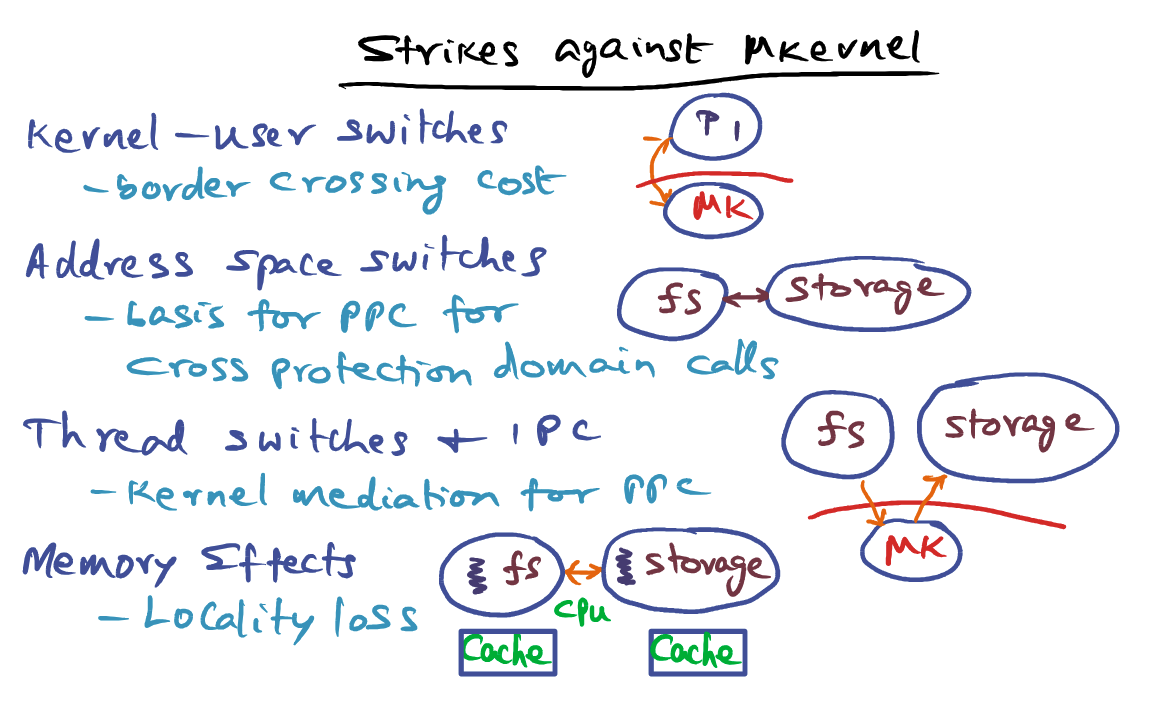 Strikes against μkernel
Kernel – user switches
- border crossing cost
P1
μK
Address space switches
- basis for PPC for
cross protection domain calls
fs
storage
Thread switches + IPC
- Kernel mediation for PPC
fs
storage
μK
Memory Effects
- Locality loss
fs
storage
CPU
Cache
Cache